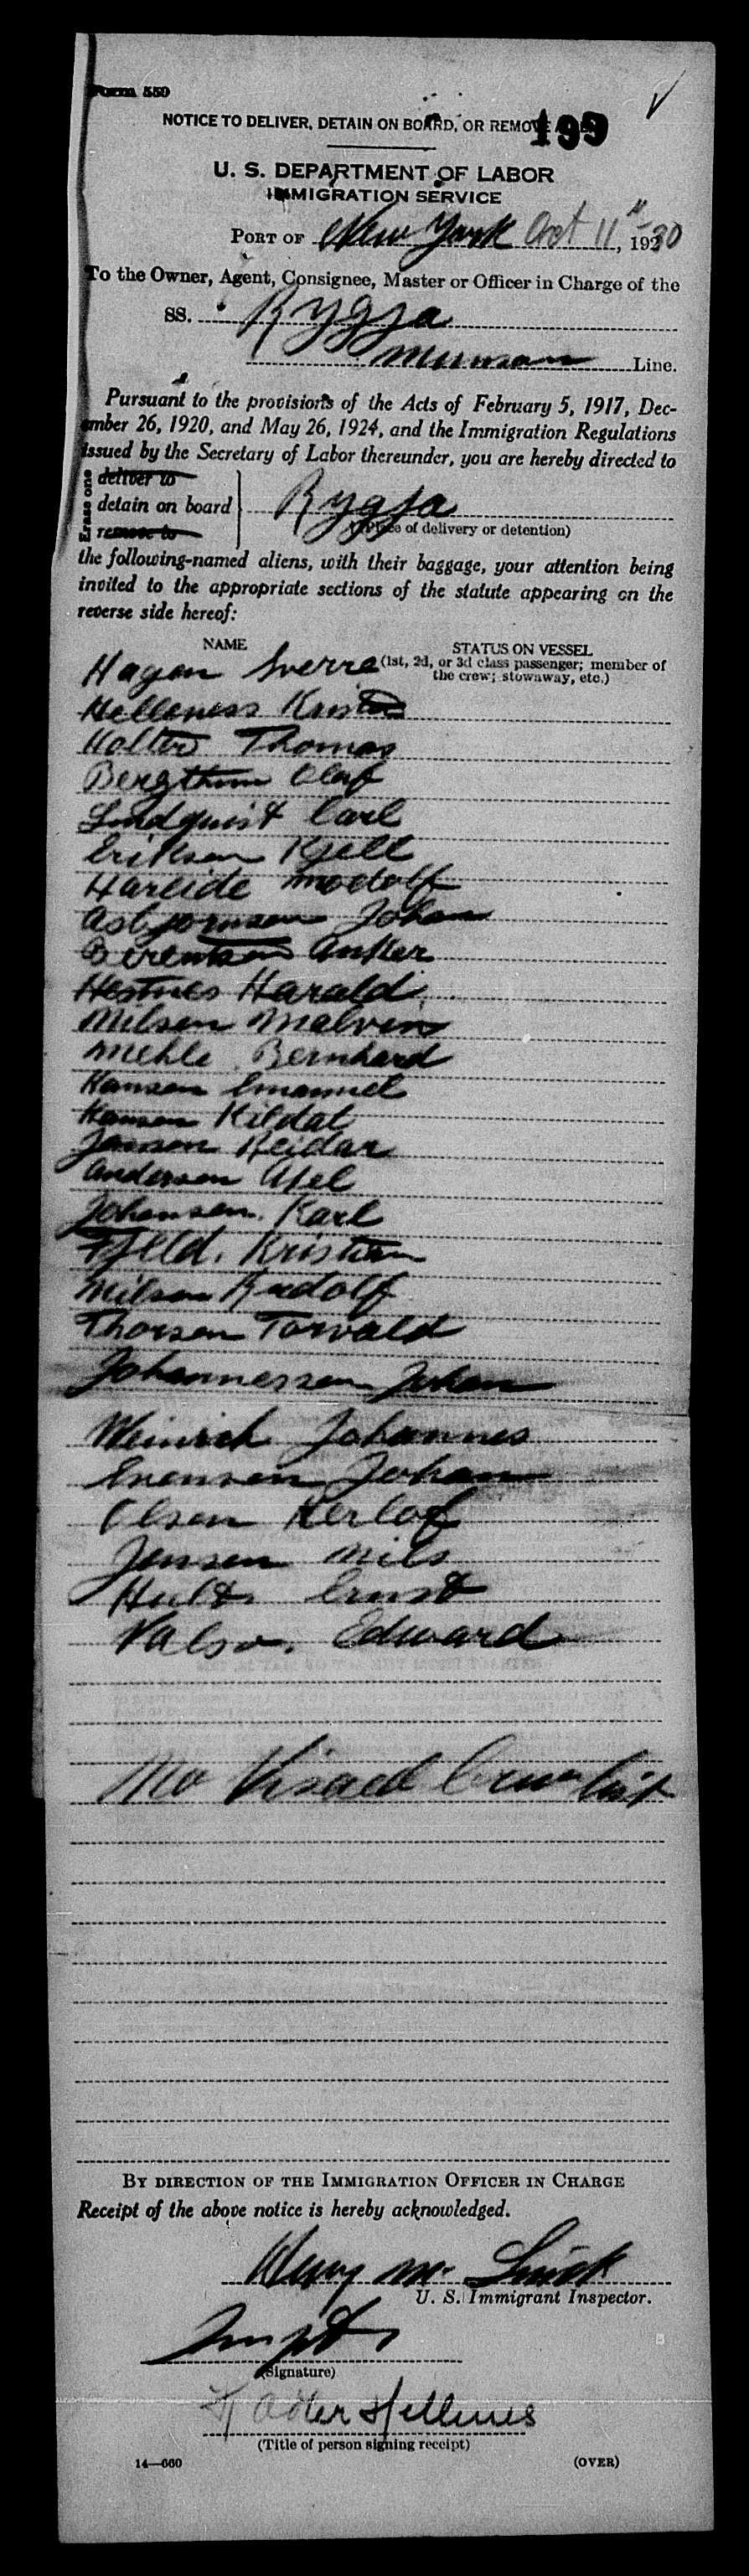 Form 559
NOTICE TO DELIVER, DETAIN ON BOARD, OR REMOVE
199
U. S. DEPARTMENT OF LABOR
IMMIGRATION SERVICE
PORT OF New York Oct 11", 1930
To the Owner, Agent, Consignee, Master or Officer in Charge of the
SS. Rygja
Munson Line.
Pursuant to the provisions of the Acts of February 5, 1917, Dec-
ember 26, 1920, and May 26, 1924, and the Immigration Regulations
issued by the Secretary of Labor thereunder, you are hereby directed to
Erase one
deliver to
detain on board
remove to
Rygja
(Place of delivery or detention)
the following-named aliens, with their baggage, your attention being
invited to the appropriate sections of the statute appearing on the
reverse side hereof:
NAME
STATUS ON VESSEL
(1st, 2d, or 3d class passenger; member of
the crew; stowaway, etc.)
Hagen Sverre
Helleness
Holter Thomas
Olaf
Lindquist Carl
Eriksen Kjell
Hareide Modolf
Asbjornsen Johan
Berentsen Anker
Hestnes Harald
Nilsen Malvin
Mehle Bernhard
Hansen Emanuel
Hansen
Jansen Reidar
Andersen
Johansen. Karl
Fjeld. Kristian
Nilsen Rudolf
Thorsen Torvald
Johannessen Johan
Weinrich Johannes
Evensen Johan
Olsen Herlof
Jensen Nils
Ernst
Valso. Edward
No Visaed Crew List
BY DIRECTION OF THE IMMIGRATION OFFICER IN CHARGE
Receipt of the above notice is hereby acknowledged.
U. S. Immigrant Inspector.
(Signature)
(Title of person signing receipt)
14—660
(OVER)